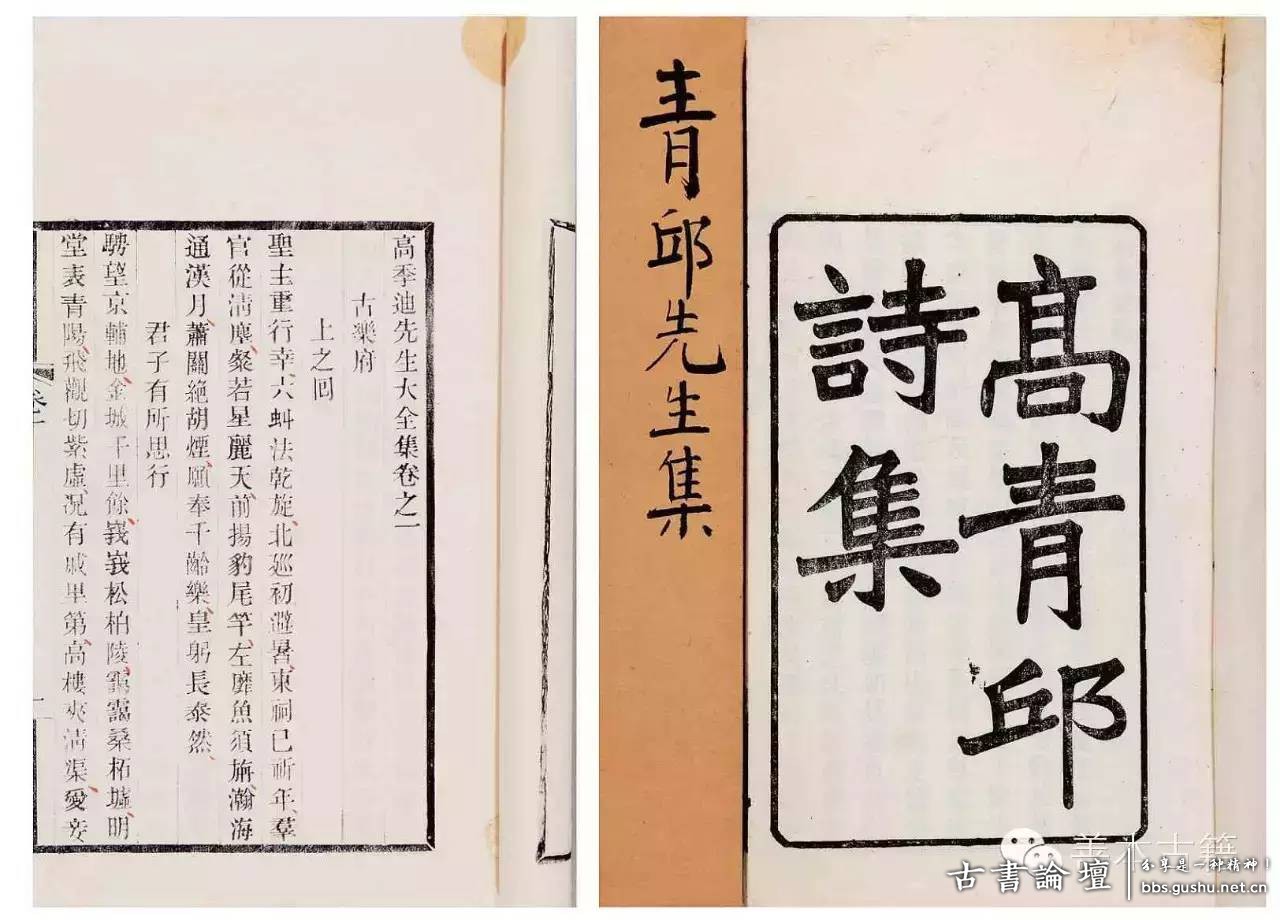 青邱先生集
高青邱
詩集
高季迪先生大全集卷之一
古樂府
上之回
聖主重行幸六虯法乾旋北巡初避暑東祠已祈年羣
官從清塵粲若星麗天前揚豹尾竿左靡魚須旃瀚海
通漢月蕭關絕胡煙願奉千齡樂皇躬長泰然
君子有所思行
騁望京輔地金城千里餘峩峩松柏陵靄靄桑柘墟明
堂表青陽飛觀切紫虛况有戚里第高樓夾清渠愛妾
卷一
一
善本古籍
古書論壇
分享是一种精神！
bbs.gushu.net.cn